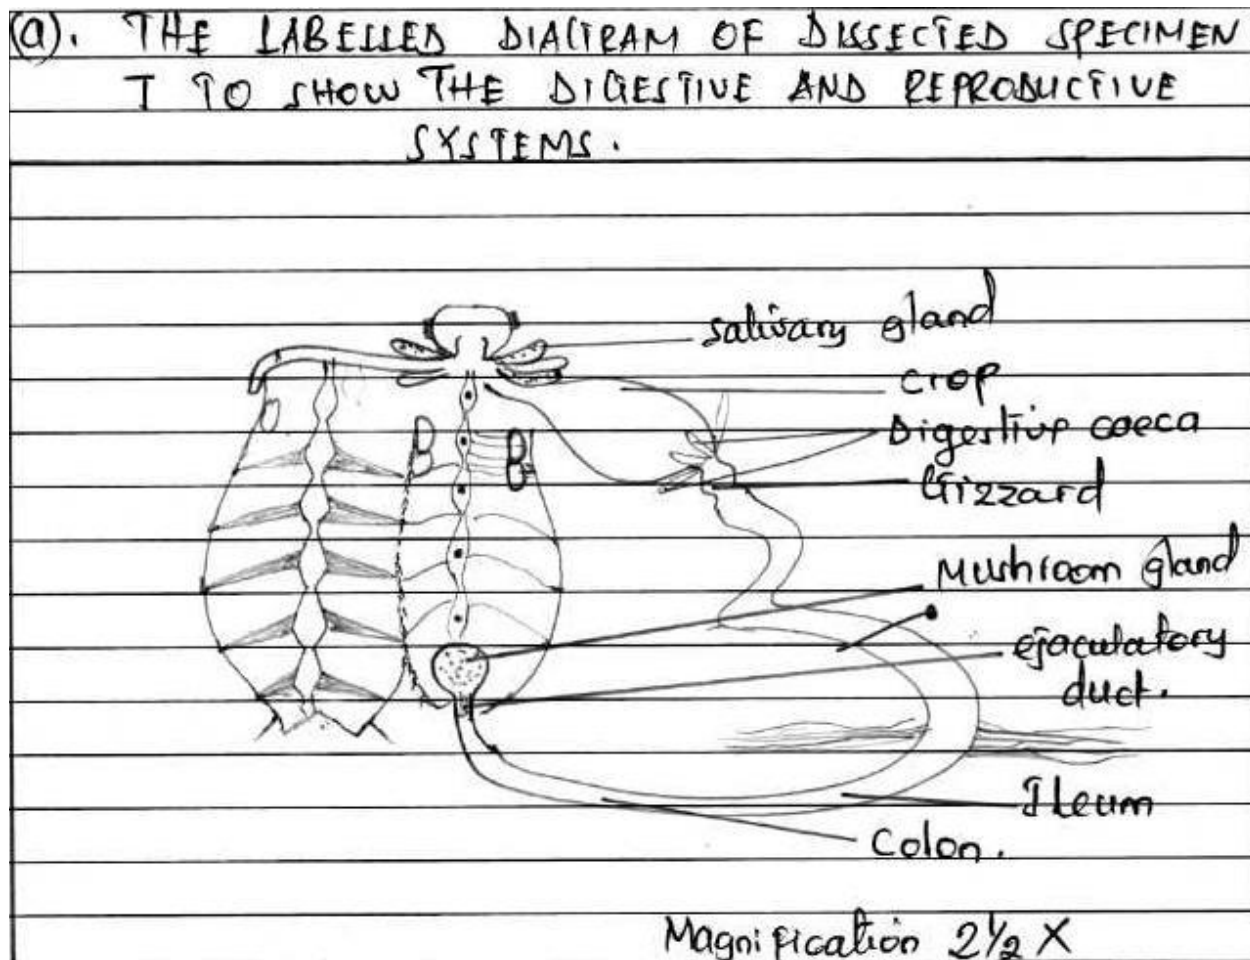 (a). THE LABELLED DIAGRAM OF DISSECTED SPECIMEN
T TO SHOW THE DIGESTIVE AND REPRODUCTIVE
SYSTEMS.
salivary gland
crop
Digestive caeca
Gizzard
Mushroom gland
ejaculatory
duct.
Ileum
Colon.
Magnification 2½ X